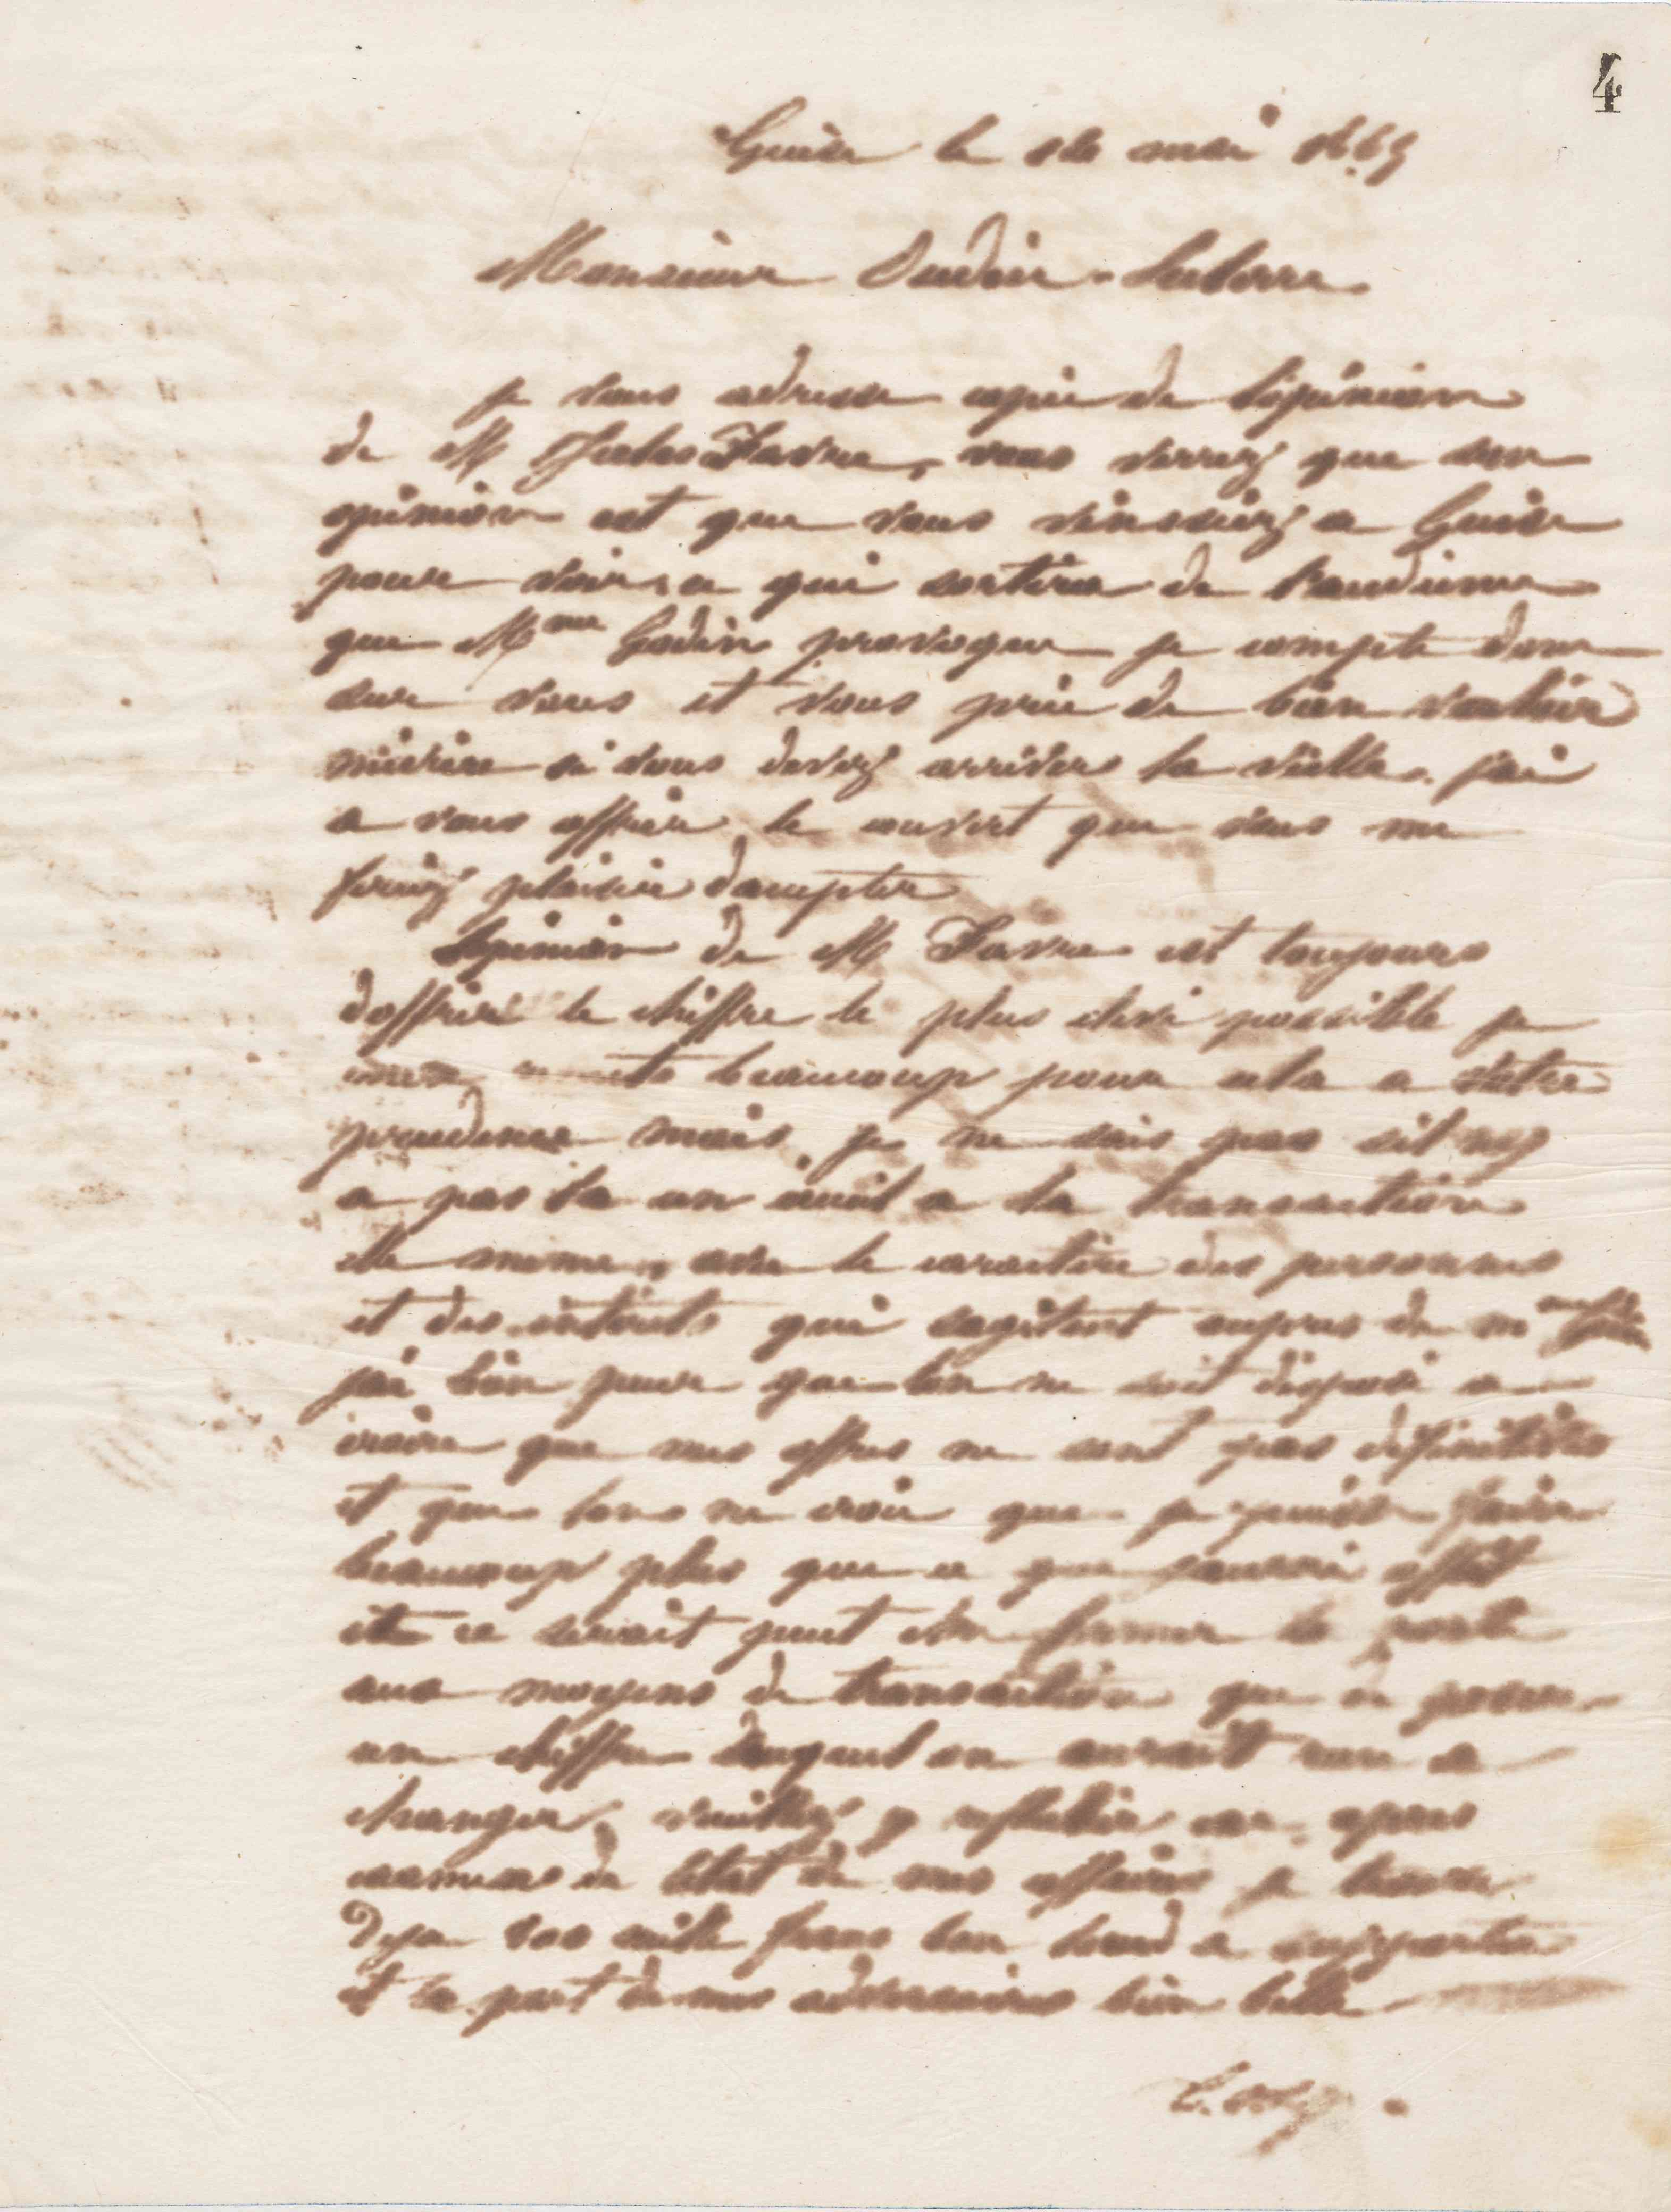 4
Guise le 16 mai 1865
Monsieur Oudin-Leclerre
je vous adresse copie de lopinion
de M Jules Favre, vous verrez que son
opinion est que vous vinssiez a Guise
pour voir ce qui sortira de laudience
que Mme Godin provoque je compte donc
sur vous et vous prie de bien vouloir
mécrire si vous devez arriver la veille. jai
a vous offrir le couvert que vous me
feriez plaisir daccepter
Lopinion de M Favre est toujours
doffrir le chiffre le plus élevé possible je
beaucoup pour cela a votre
prudence mais je ne sais pas sil ny
a pas la un écueil a la transaction
elle meme, avec le caractère des personnes
et des intérêts qui sagitent aupres de
jai bien peur que lon ne soit disposé a
croire que mes offres ne sont pas définitives
et que lons ne croie que je puisse faire
beaucoup plus que ce que jaurai offert
et ce serait peut etre fermer la porte
aux moyens de transaction que de poser
un chiffre auquel on aurait rien a
changer, veuillez y refléchir car apres
examen de létat de mes affaires je trouve
deja 100 mille francs bien lourd a supporter
et la part de mes adversaires bien belle